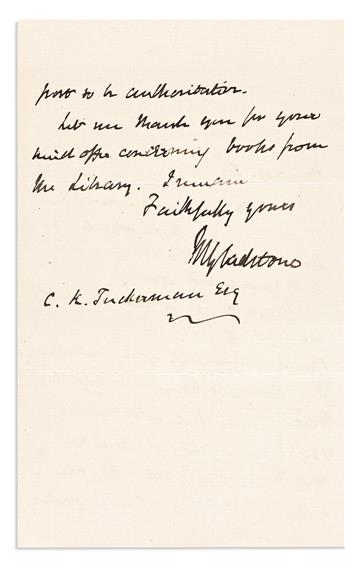 port to be authoritative.
Let me thank you for your
kind offer concerning books from
the Library. I remain
Faithfully yours
WEGladstone
C. K. Tuckerman Esq